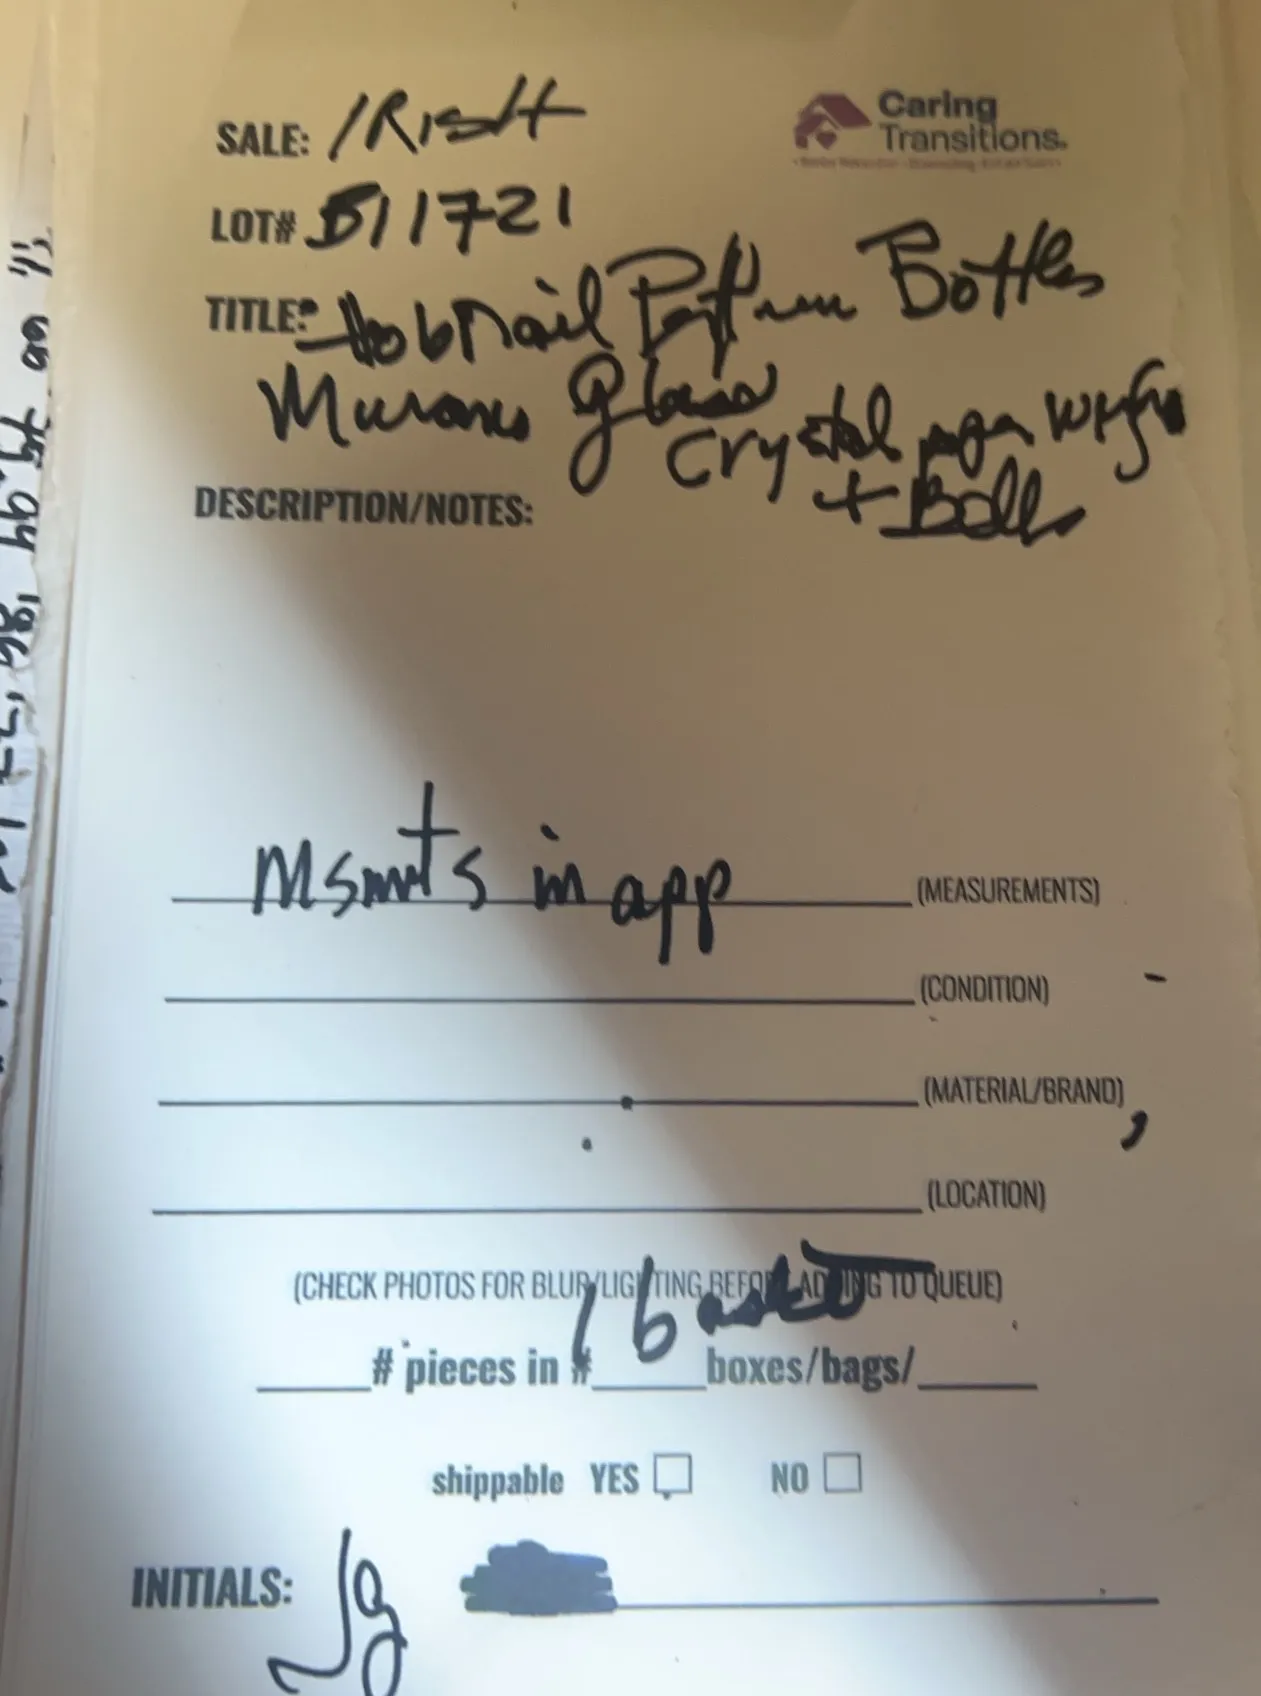 Caring
Transitions.
SALE:
LOT# 11721
TITLE: Hobnail Perfum Bottles
Murano glass
Crystal
+ Balls
DESCRIPTION/NOTES:
Msmts in app (MEASUREMENTS)
(CONDITION)
(MATERIAL/BRAND)
(LOCATION)
(CHECK PHOTOS FOR BLUR/LIGHTING BEFORE ADDING TO QUEUE)
1 basket
# pieces in # boxes/bags/
shippable YES NO
INITIALS: Jg